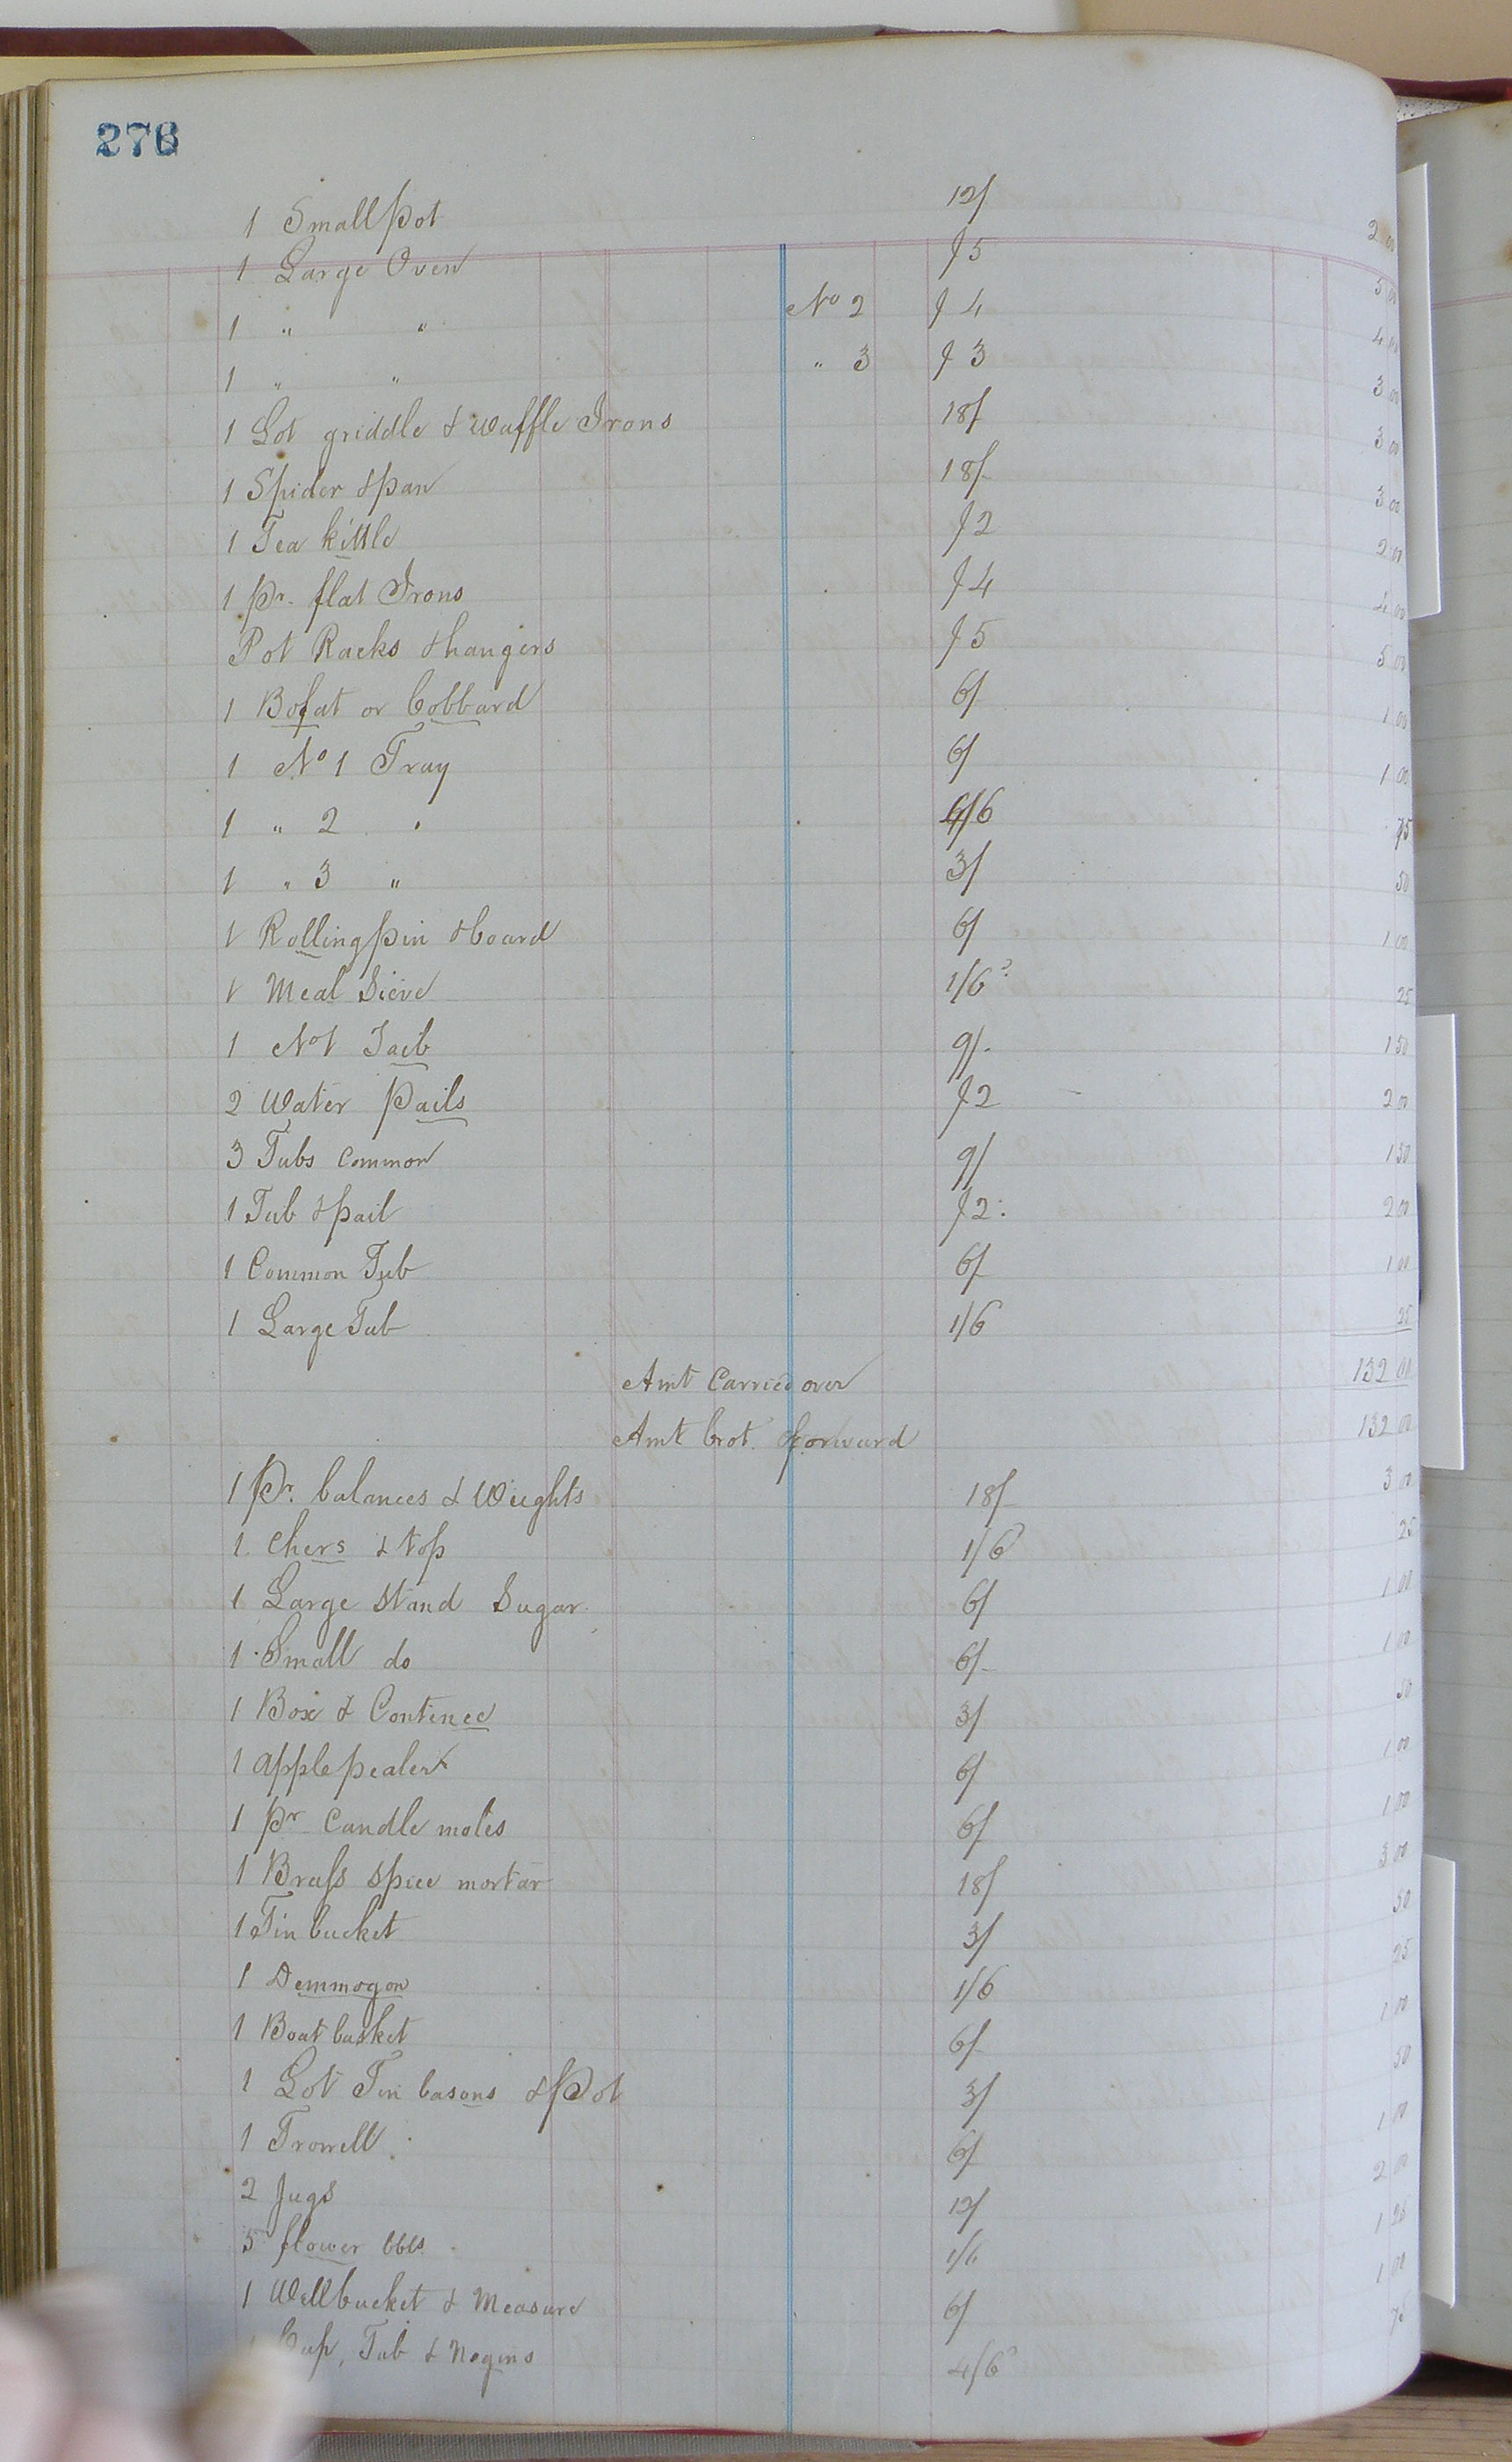 276
1 Small pot 12/ 2 00
1 Large Oven $5 5 00
1 " " No 2 $4 4 00
1 " " " 3 $3 3 00
1 Lot griddle & Waffle Irons 18/ 3 00
1 Spider & pan 18/ 3 00
1 Tea kittle $2 2 00
1 pr. flat Irons $4 4 00
Pot Racks & hangers $5 5 00
1 Bofat or Cobbard 6/ 1 00
1 No 1 Tray 6/ 1 00
1 " 2 " 4/6 75
1 " 3 " 3/ 50
1 Rolling pin & board 6/ 1 00
1 Meal Sieve 1/6 25
1 No 1 9/ 1 50
2 Water Pails $2 2 00
3 Tubs Common 9/ 1 50
1 Tub & pail $2 2 00
1 Common Tub 6/ 1 00
1 Large Tub 1/6 25
Amt Carried over 132 00
Amt brot. forward 132 00
1 Pr. balances & Weights 18/ 3 00
1 Chers & top 1/6 25
1 Large Stand Sugar 6/ 1 00
1 Small do 6/ 1 00
1 Box & Contence 3/ 50
1 apple pealer 6/ 1 00
1 pr Candle moles 6/ 1 00
1 Brass Spice mortar 18/ 3 00
1 Tin bucket 3/ 50
1 Demmogon 1/6 25
1 Boat basket 6/ 1 00
1 Lot Tin basons & Pot 3/ 50
1 Trowell 6/ 1 00
2 Jugs 12/ 2 00
5 flower bbls 1/6 1 25
1 Well bucket & Measure 6/ 1 00
Cup, Tub & Nogins 4/6 75